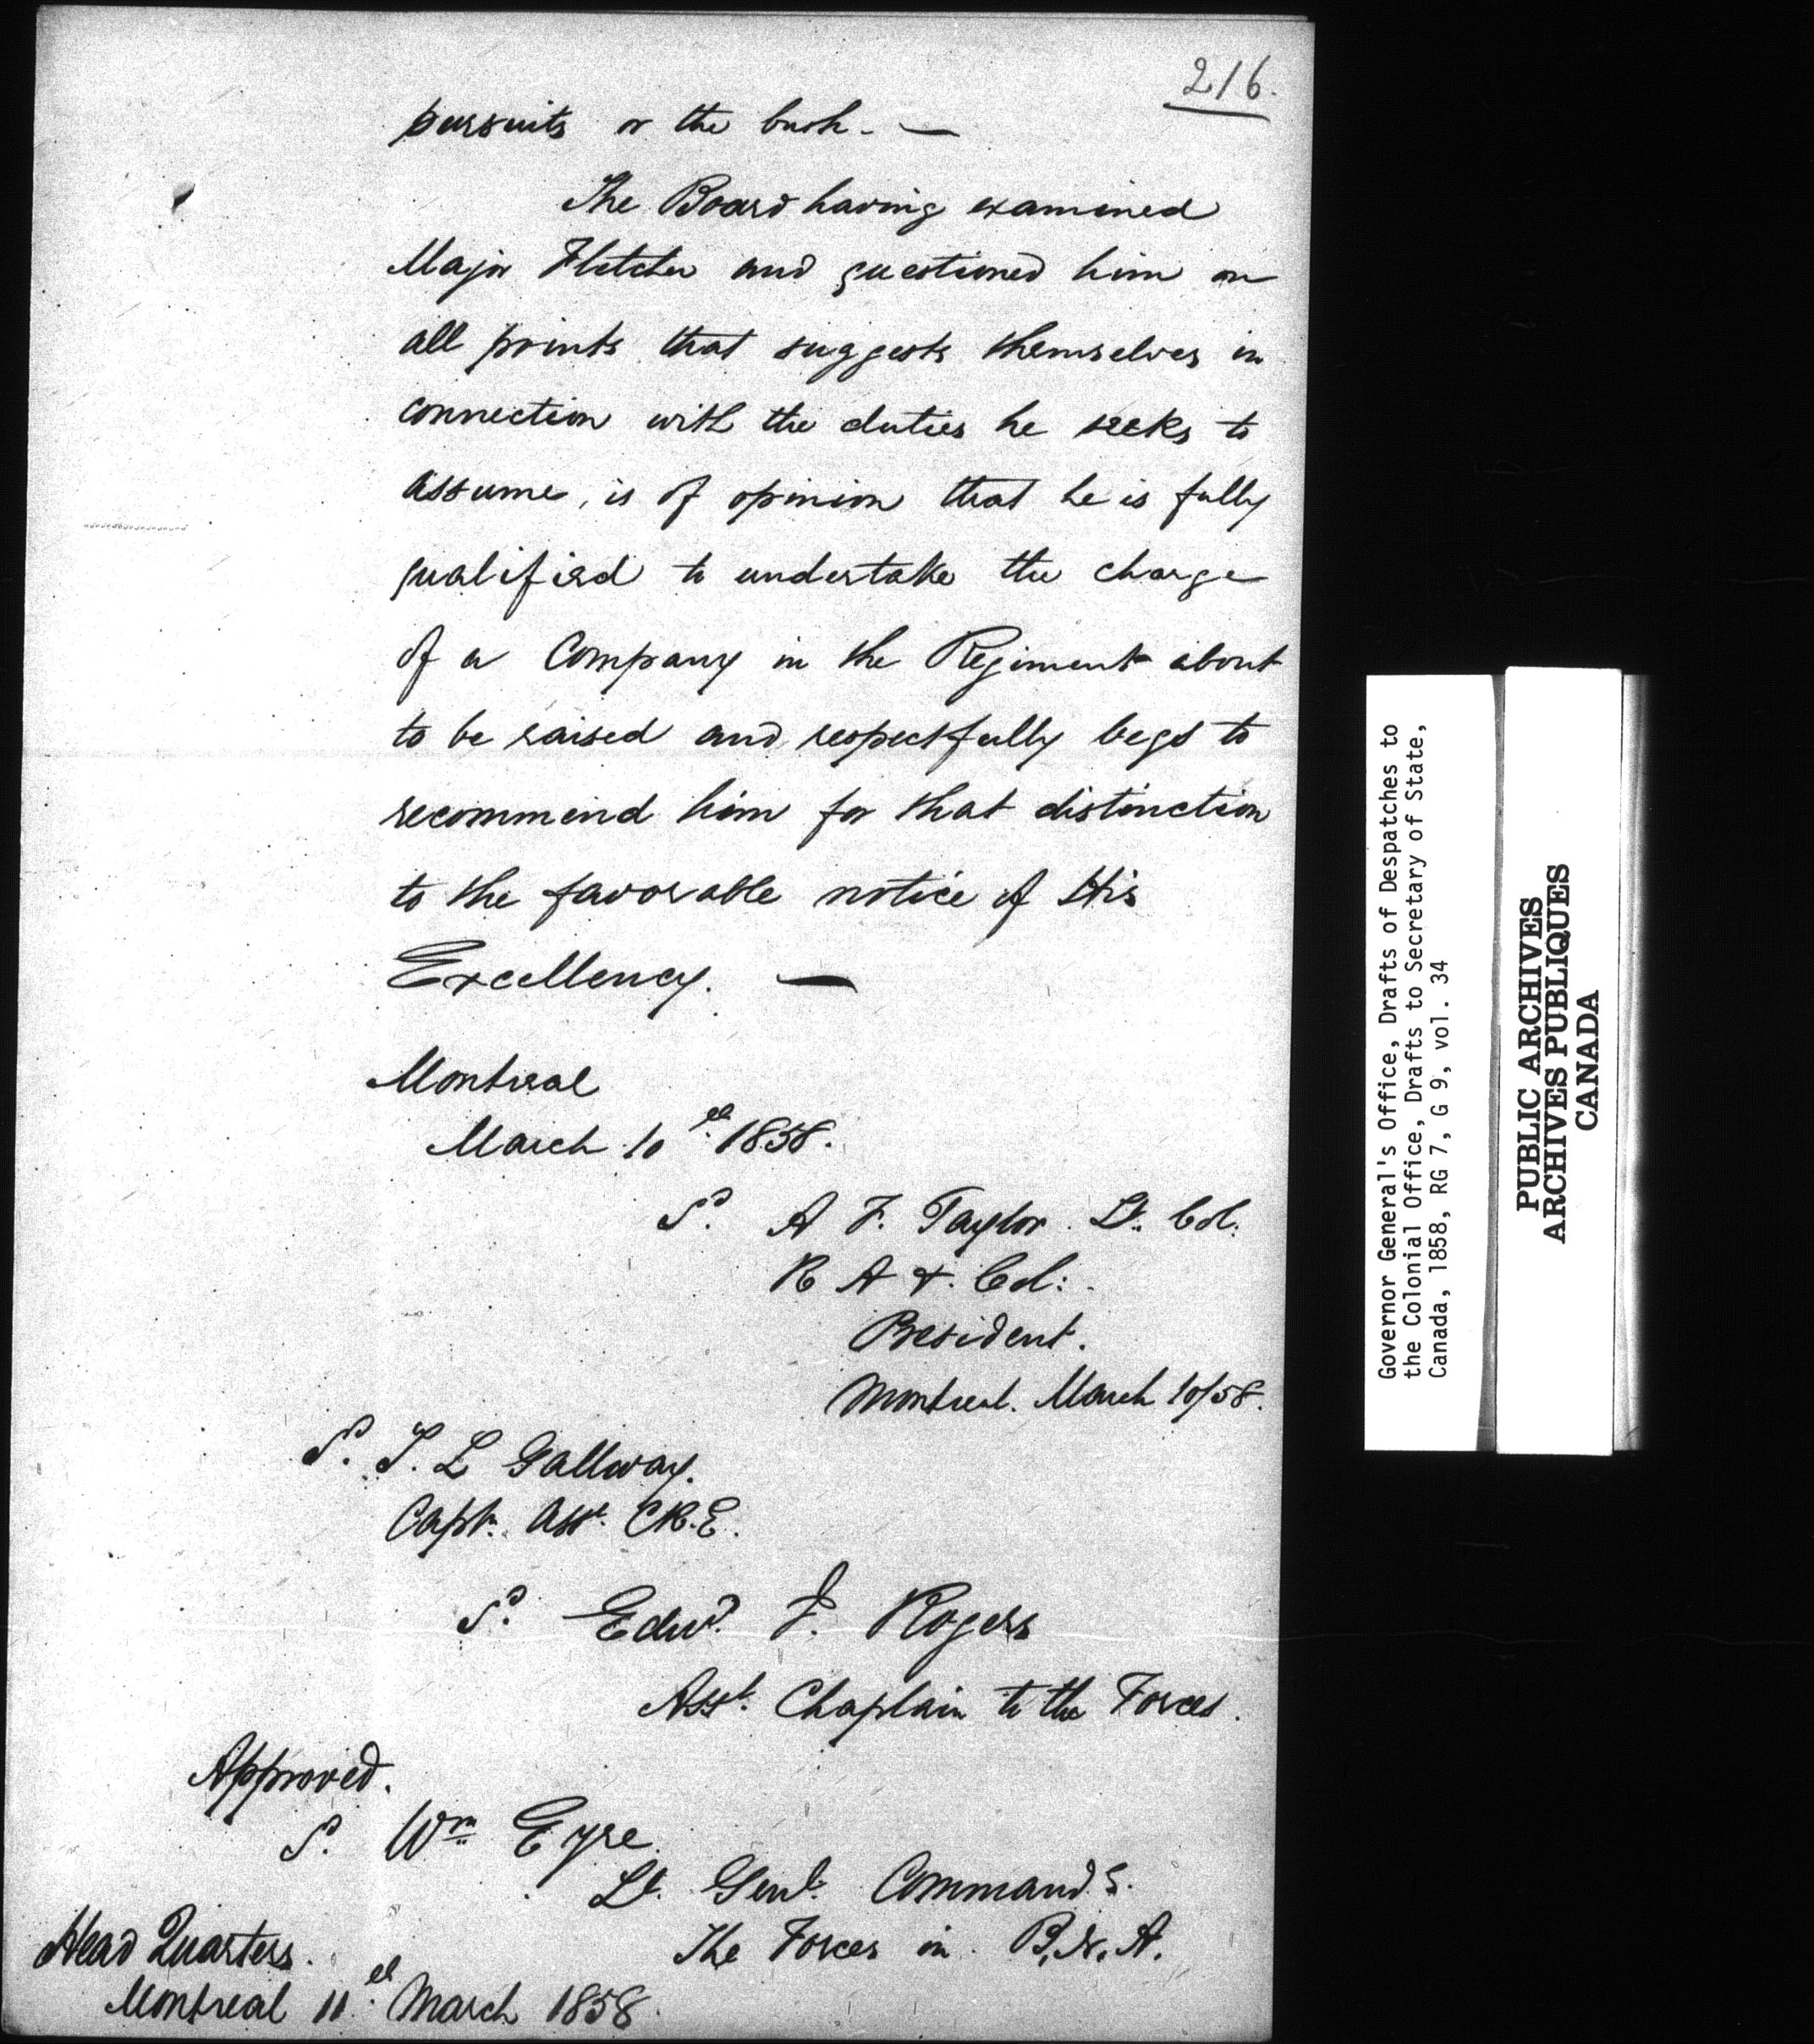 216.
pursuits or the bush. —
The Board having examined
Major Fletcher and questioned him on
all points that suggests themselves in
connection with the duties he seeks to
assume, is of opinion that he is fully
qualified to undertake the charge
of a Company in the Regiment about
to be raised and respectfully begs to
recommend him for that distinction
to the favorable notice of His
Excellency. —
Montreal
March 10th 1858.
Sd. A F. Taylor Lt. Col.
R A & Col:
President.
Montreal. March 10/58.
S. T. L Gallway.
Capt. Asst. CR.E.
Sd. Edwd. J. Rogers
Asst. Chaplain to the Forces.
Approved.
S. Wm Eyre
Lt. Genl. Commandg.
The Forces in B.N.A.
Head Quarters.
Montreal 11th March 1858.
Governor General's Office, Drafts of Despatches to
the Colonial Office, Drafts to Secretary of State,
Canada, 1858, RG 7, G 9, vol. 34
PUBLIC ARCHIVES
ARCHIVES PUBLIQUES
CANADA